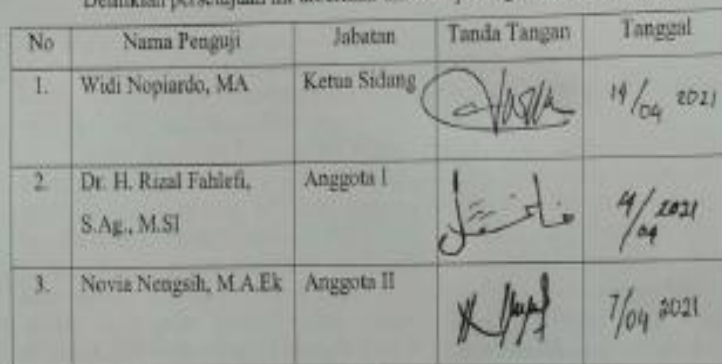 No Nama Penguji Jabatan Tanda Tangan Tanggal
1. Widi Nopiardo, MA Ketua Sidang 19/04 2021
2. Dr. H. Rizal Fahlefi, Anggota I
S.Ag., M.SI /04 2021
3. Novia Nengsih, M.A.Ek Anggota II 7/04 2021